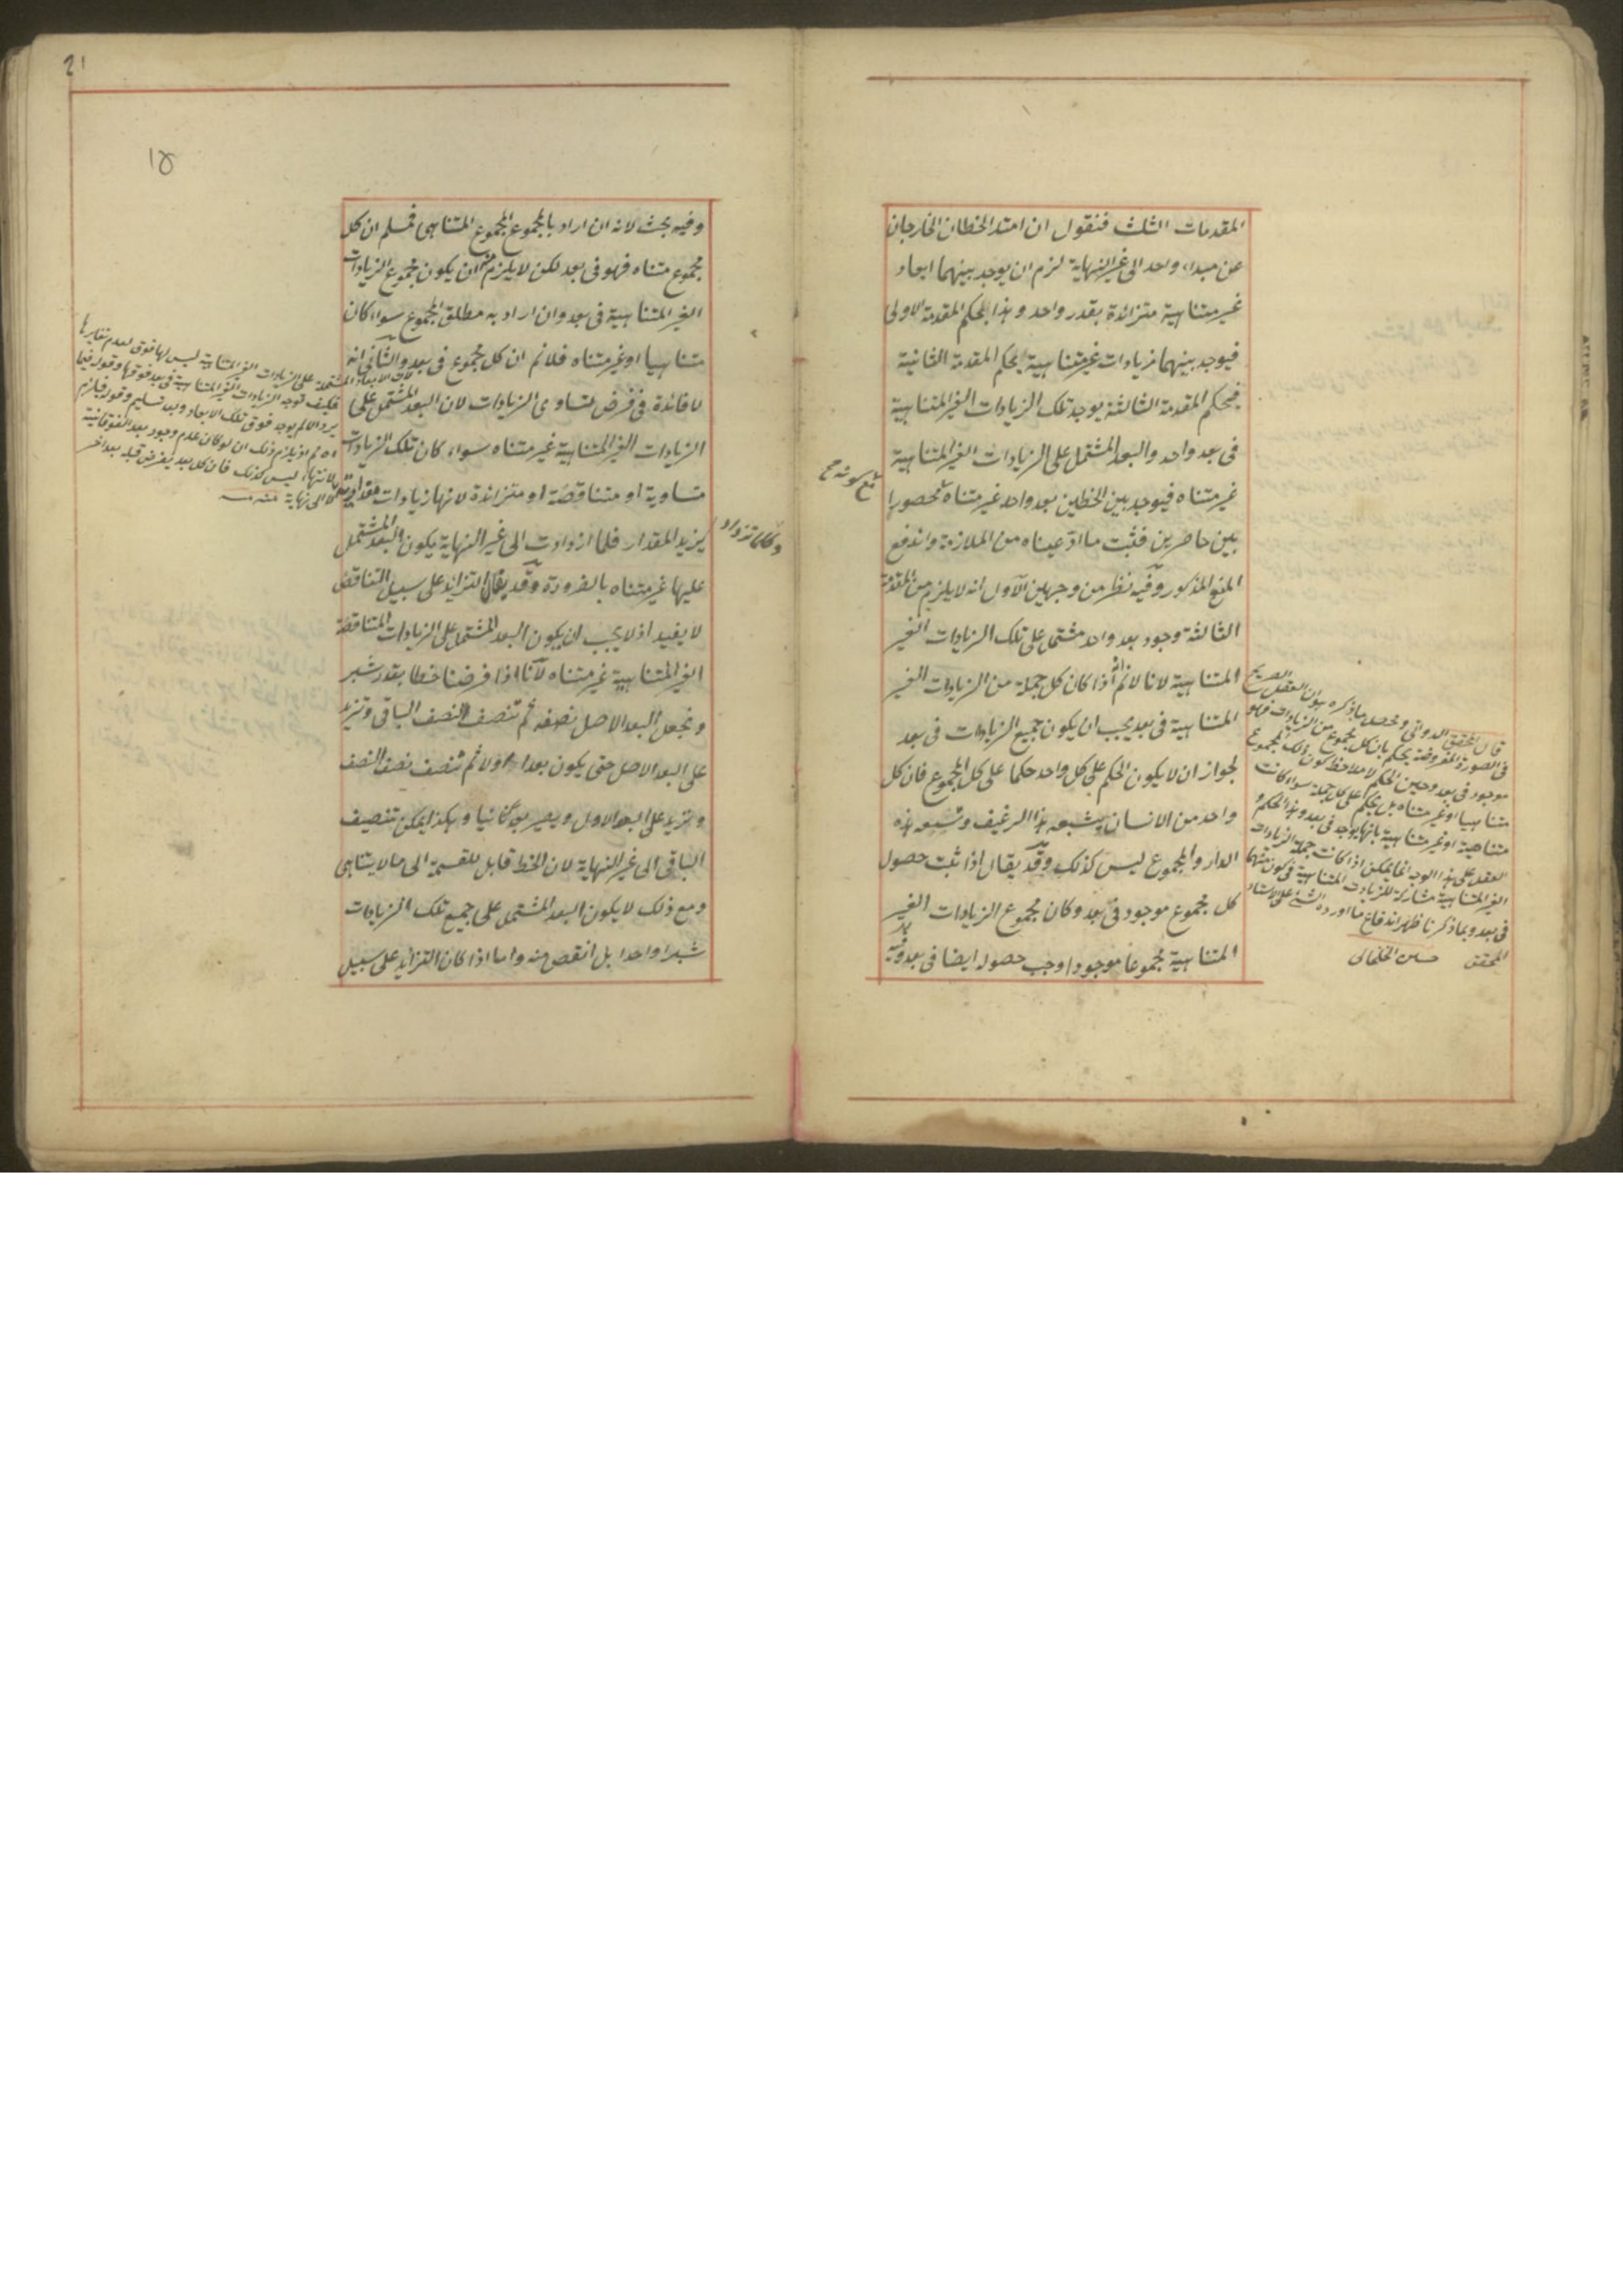 المقدمات الثلث فنقول ان امتد الخطان الخارجان
عن مبداء واحد الى غير النهاية لزم ان يوجد بينهما ابعاد
غير متناهية متزائدة بقدر واحد وهذا بحكم المقدمة الاولى
فيوجد بينهما زيادات غير متناهية بحكم المقدمة الثانية
فبحكم المقدمة الثالثة يوجد تلك الزيادات الغير المتناهية
فى بعد واحد والبعد المشتمل على الزيادات الغير المتناهية
غير متناه فيوجد بين الخطين بعد واحد غير متناه محصورا
مع كونه
بين حاصرين فثبت ما ادعيناه من الملازمة واندفع
المنع المذكور وفيه نظر من وجهين الاول انه لا يلزم من المقدمة
الثالثة وجود بعد واحد مشتمل على تلك الزيادات الغير
المتناهية لانا لانم انه اذا كان كل جملة من الزيادات الغير
المتناهية فى بعد يجب ان يكون جميع الزيادات فى بعد
لجواز ان لا يكون الحكم على كل واحد حكما على كل المجموع فان كل
واحد من الانسان يشبعه هذا الرغيف وتسعه هذه
الدار والمجموع ليس كذلك وقد يقال اذا ثبت حصول
كل مجموع موجود فى بعد وكان مجموع الزيادات الغير
المتناهية مجموعا موجودا وجب حصوله ايضا فى بعد وفيه
قال المحقق الدوانى ومحصل ما ذكره هو ان العقل الصريح
فى الصورة المفروضة يحكم بان كل مجموع من الزيادات فهو
موجود فى بعد وحين الحكم لا ملاحظ كون ذلك المجموع
متناهيا او غير متناه بل يحكم على كل جملة سواء كانت
متناهية او غير متناهية بانها يوجد فى بعد وهذا الحكم و
العقل على هذا الوجه انما يمكن اذا كانت جملة الزيادات
الغير المتناهية مشاركة للزيادات المتناهية فى كون
فى بعد وبما ذكرنا ظهر اندفاع ما اورده الشيخ على الاستاد
المحقق حسين الخلخالى
21
١٥
وفيه بحث لانه ان اراد بالمجموع المجموع المتناهى فمسلم ان كل
مجموع متناه فهو فى بعد لكن لا يلزم منه ان يكون مجموع الزيادات
الغير المتناهية فى بعد وان اراد به مطلق المجموع سواء كان
متناهيا او غير متناه فلانم ان كل مجموع فى بعد والثانى انه
لا فائدة فى فرض تساوى الزيادات لان البعد المشتمل على
الزيادات الغير المتناهية غير متناه سواء كان تلك الزيادات
متساوية او متناقصة او متزائدة لانها زيادات مقدارية
وكلما تزداد
يزيد المقدار فلما ازدادت الى غير النهاية يكون البعد المشتمل
عليها غير متناه بالضرورة وقد يقال التزايد على سبيل التناقص
لا يفيد اذ لا يجب ان يكون البعد المشتمل على الزيادات المتناقصة
الغير المتناهية غير متناه لانا اذا فرضنا خطا بقدر شبر
ونجعل البعد الاصل نصفه ثم تنصف النصف الباقى وتزيد
على البعد الاصل حتى يكون بعدا اولا ثم تنصف نصف النصف
وتزيد على البعد الاول ويصير بعدا ثانيا وهكذا يمكن تنصيف
الباقى الى غير النهاية لان الخط قابل للقسمة الى ما لا يتناهى
ومع ذلك لا يكون البعد المشتمل على جميع تلك الزيادات
شبرا واحدا بل انقص منه واما اذا كان التزايد على سبيل
لان الابعاد المشتملة على الزيادات الغير المتناهية ليس لها فوق لعدم تغايرها
فكيف توجد الزيادات الغير المتناهية فى بعد فوقها وقوله فيما
يرد الا لم يوجد فوق تلك الابعاد وبعد تسليم وقوله فيلزم
اه ثم اذ يلزم ذلك ان لو كان عدم وجود بعد الفوقانية
لانتهاء ليس كذلك فان كل بعد يفرض قبله بعد اخر
لا الى نهاية منه